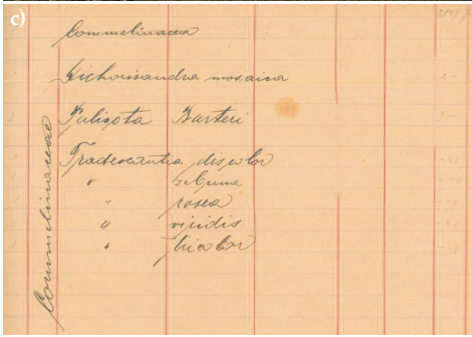 c)
Commelinacea
Dichorisandra mosaica
Palisota Barteri
Tradescantia discolor
" zebrina
" rosea
" viridis
" tricolor
Commelinaceae